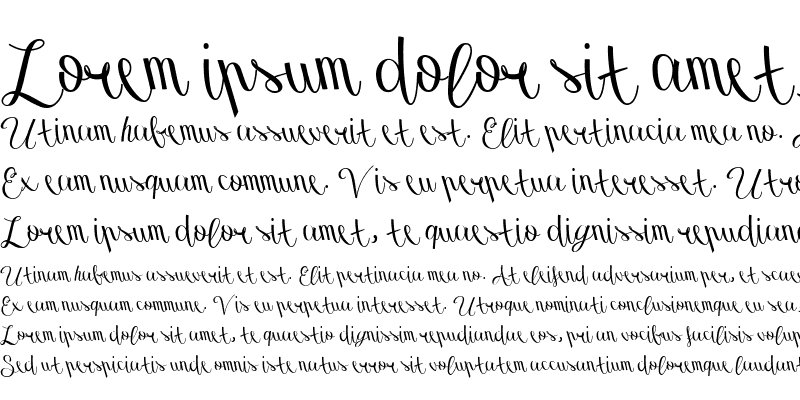 Lorem ipsum dolor sit amet,
Utinam habemus assueverit et est. Elit pertinacia mea no.
Ex eam nusquam commune. Vis eu perpetua interesset. Utro
Lorem ipsum dolor sit amet, te quaestio dignissim repudiand
Utinam habemus assueverit et est. Elit pertinacia mea no. At eleifend adversarium per, et scaev
Ex eam nusquam commune. Vis eu perpetua interesset. Utroque nominati conclusionemque eu sea.
Lorem ipsum dolor sit amet, te quaestio dignissim repudiandae eos, pri an vocibus facilisis volup
Sed ut perspiciatis unde omnis iste natus error sit voluptatem accusantium doloremque laudant